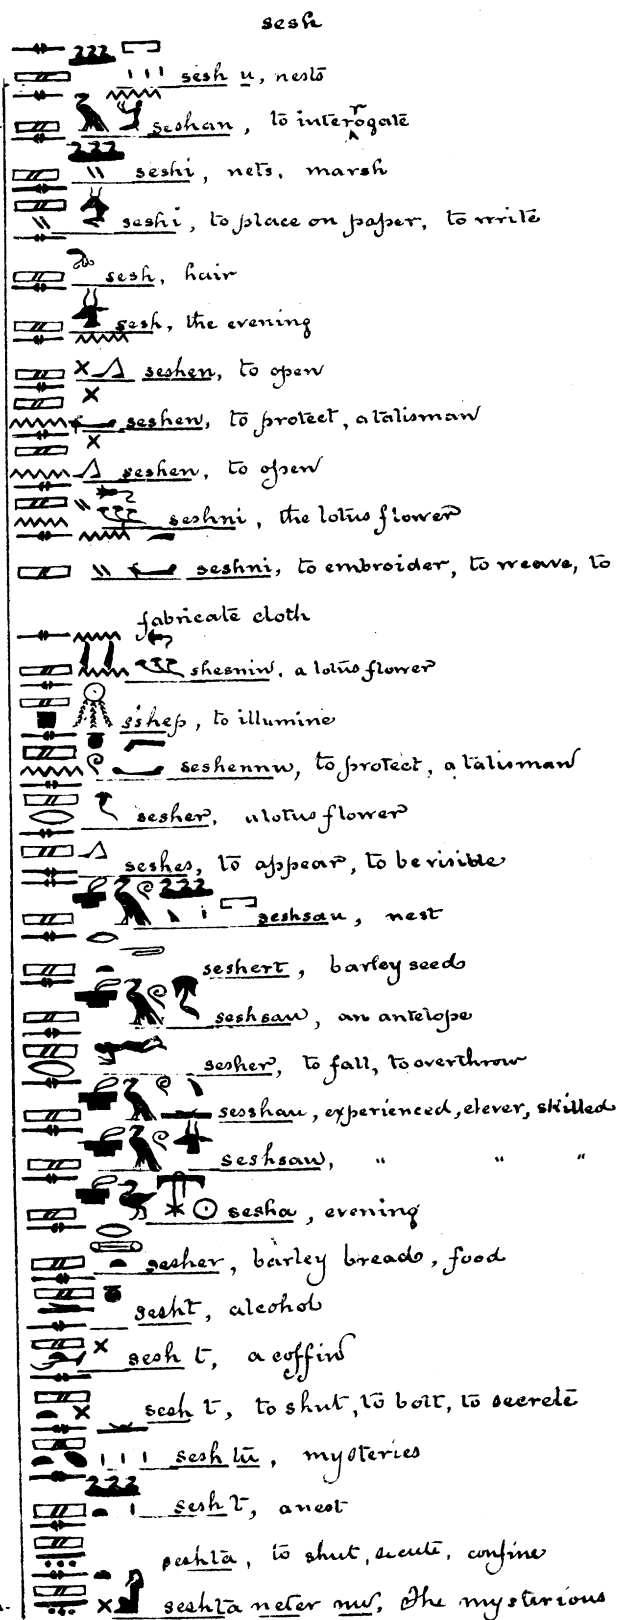 sesh
sesh u, nests
seshan, to interrogate
seshi, nets, marsh
seshi, to place on paper, to write
sesh, hair
sesh, the evening
seshen, to open
seshen, to protect, a talisman
seshen, to open
seshni, the lotus flower
seshni, to embroider, to weave, to
fabricate cloth
shesnin, a lotus flower
sshep, to illumine
seshennu, to protect, a talisman
sesher, a lotus flower
seshes, to appear, to be visible
seshsau, nest
seshert, barley seed
seshsau, an antelope
sesher, to fall, to overthrow
sesshau, experienced, clever, skilled
seshsau, " " "
sesha, evening
sesher, barley bread, food
sesht, alcohol
sesh t, a coffin
sesh t, to shut, to bolt, to secrete
sesh tu, mysteries
sesh t, a nest
seshta, to shut, secute, confine
seshta neter nu, The mysterious